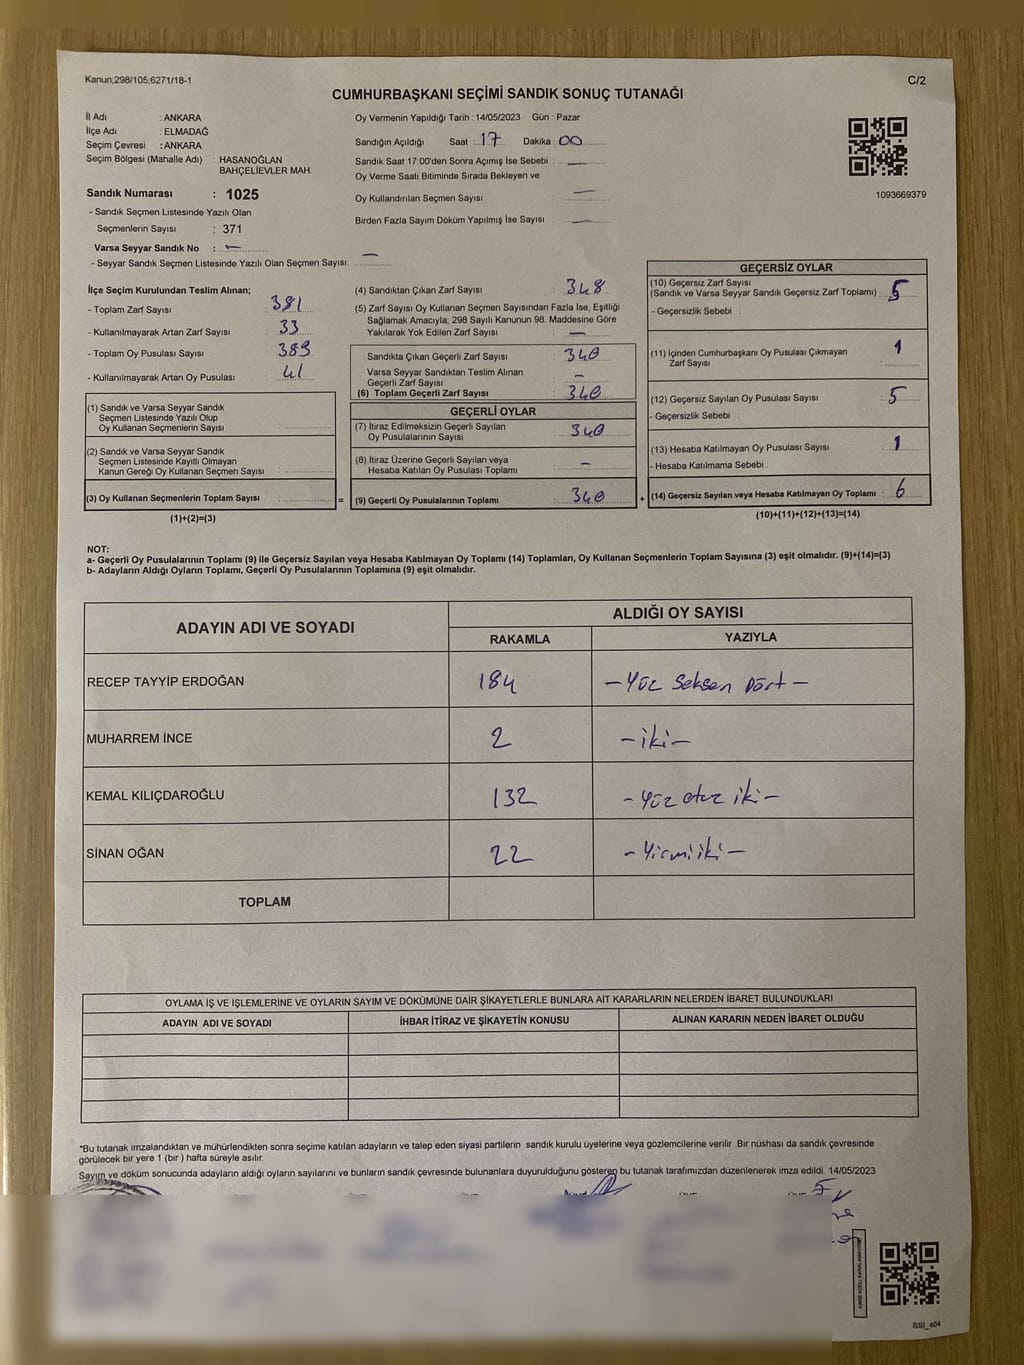 Kanun;298/105,6271/18-1
C/2
CUMHURBAŞKANI SEÇİMİ SANDIK SONUÇ TUTANAĞI
İl Adı : ANKARA
İlçe Adı : ELMADAĞ
Seçim Çevresi : ANKARA
Seçim Bölgesi (Mahalle Adı) : HASANOĞLAN
BAHÇELİEVLER MAH.
Sandık Numarası : 1025
- Sandık Seçmen Listesinde Yazılı Olan
Seçmenlerin Sayısı : 371
Varsa Seyyar Sandık No : —
- Seyyar Sandık Seçmen Listesinde Yazılı Olan Seçmen Sayısı: —
Oy Vermenin Yapıldığı Tarih : 14/05/2023 Gün : Pazar
Sandığın Açıldığı Saat : 17 Dakika : 00
Sandık Saat 17:00'den Sonra Açımış İse Sebebi : —
Oy Verme Saati Bitiminde Sırada Bekleyen ve
Oy Kullandırılan Seçmen Sayısı : —
Birden Fazla Sayım Döküm Yapılmış İse Sayısı : —
1093669379
İlçe Seçim Kurulundan Teslim Alınan;
- Toplam Zarf Sayısı : 381
- Kullanılmayarak Artan Zarf Sayısı : 33
- Toplam Oy Pusulası Sayısı : 389
- Kullanılmayarak Artan Oy Pusulası : 41
(1) Sandık ve Varsa Seyyar Sandık
Seçmen Listesinde Yazılı Olup
Oy Kullanan Seçmenlerin Sayısı :
(2) Sandık ve Varsa Seyyar Sandık
Seçmen Listesinde Kayıtlı Olmayan
Kanun Gereği Oy Kullanan Seçmen Sayısı :
(3) Oy Kullanan Seçmenlerin Toplam Sayısı :
(1)+(2)=(3)
=
(4) Sandıktan Çıkan Zarf Sayısı : 348
(5) Zarf Sayısı Oy Kullanan Seçmen Sayısından Fazla İse, Eşitliği
Sağlamak Amacıyla; 298 Sayılı Kanunun 98. Maddesine Göre
Yakılarak Yok Edilen Zarf Sayısı : —
Sandıkta Çıkan Geçerli Zarf Sayısı : 340
Varsa Seyyar Sandıktan Teslim Alınan
Geçerli Zarf Sayısı : —
(6) Toplam Geçerli Zarf Sayısı : 340
GEÇERLİ OYLAR
(7) İtiraz Edilmeksizin Geçerli Sayılan
Oy Pusulalarının Sayısı : 340
(8) İtiraz Üzerine Geçerli Sayılan veya
Hesaba Katılan Oy Pusulası Toplamı : —
(9) Geçerli Oy Pusulalarının Toplamı : 340
+
GEÇERSİZ OYLAR
(10) Geçersiz Zarf Sayısı
(Sandık ve Varsa Seyyar Sandık Geçersiz Zarf Toplamı) : 5
- Geçersizlik Sebebi :
(11) İçinden Cumhurbaşkanı Oy Pusulası Çıkmayan
Zarf Sayısı : 1
(12) Geçersiz Sayılan Oy Pusulası Sayısı : 5
- Geçersizlik Sebebi :
(13) Hesaba Katılmayan Oy Pusulası Sayısı : 1
- Hesaba Katılmama Sebebi :
(14) Geçersiz Sayılan veya Hesaba Katılmayan Oy Toplamı : 6
(10)+(11)+(12)+(13)=(14)
NOT:
a- Geçerli Oy Pusulalarının Toplamı (9) ile Geçersiz Sayılan veya Hesaba Katılmayan Oy Toplamı (14) Toplamları, Oy Kullanan Seçmenlerin Toplam Sayısına (3) eşit olmalıdır. (9)+(14)=(3)
b- Adayların Aldığı Oyların Toplamı, Geçerli Oy Pusulalarının Toplamına (9) eşit olmalıdır.
ADAYIN ADI VE SOYADI
ALDIĞI OY SAYISI
RAKAMLA YAZIYLA
RECEP TAYYİP ERDOĞAN 184 — Yüz Seksen Dört —
MUHARREM İNCE 2 — iki —
KEMAL KILIÇDAROĞLU 132 — Yüz otuz iki —
SİNAN OĞAN 22 — Yirmi iki —
TOPLAM
OYLAMA İŞ VE İŞLEMLERİNE VE OYLARIN SAYIM VE DÖKÜMÜNE DAİR ŞİKAYETLERLE BUNLARA AİT KARARLARIN NELERDEN İBARET BULUNDUKLARI
ADAYIN ADI VE SOYADI İHBAR İTİRAZ VE ŞİKAYETİN KONUSU ALINAN KARARIN NEDEN İBARET OLDUĞU
*Bu tutanak imzalandıktan ve mühürlendikten sonra seçime katılan adayların ve talep eden siyasi partilerin sandık kurulu üyelerine veya gözlemcilerine verilir .Bir nüshası da sandık çevresinde
görülecek bir yere 1 (bir ) hafta süreyle asılır.
Sayım ve döküm sonucunda adayların aldığı oyların sayılarını ve bunların sandık çevresinde bulunanlara duyurulduğunu gösteren bu tutanak tarafımızdan düzenlenerek imza edildi. 14/05/2023
SSI_404